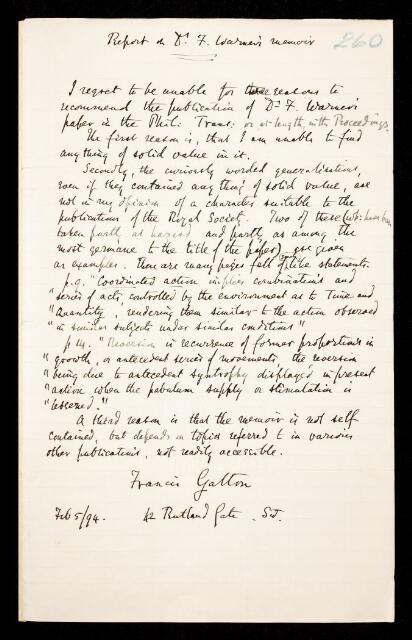 Report on Dr F. Warner's memoir
260
I regret to be unable for three reasons to
recommend the publication of Dr F. Warner's
paper in the Phil: Trans: or at length, in the Proceedings.
The first reason is, that I am unable to find
anything of solid value in it.
Secondly, the curiously worded generalisations,
even if they contained anything of solid value, are
not in my opinion of a character suitable to the
publications of the Royal Society. Two of these (which have been
taken partly at hazard and partly as among the
most germane to the title of the paper) are given
as examples. There are many pages full of like statements.
p.9. "Coordinated action implies combinations and
"series of acts, controlled by the environment as to Time and
"Quantity, rendering them similar to the action observed
"in similar subjects under similar conditions"
p 14. "Reversion is recurrence of former proportions in
"growth, or antecedent series of movements, the reversion
"being due to antecedent syntrophy displayed in present
"action when the pabulum supply or stimulation is
"lessened."
A third reason is that the memoir is not self
contained, but depends on topics referred to in various
other publications, not readily accessible.
Francis Galton
Feb 5/94. 42 Rutland Gate. SW.